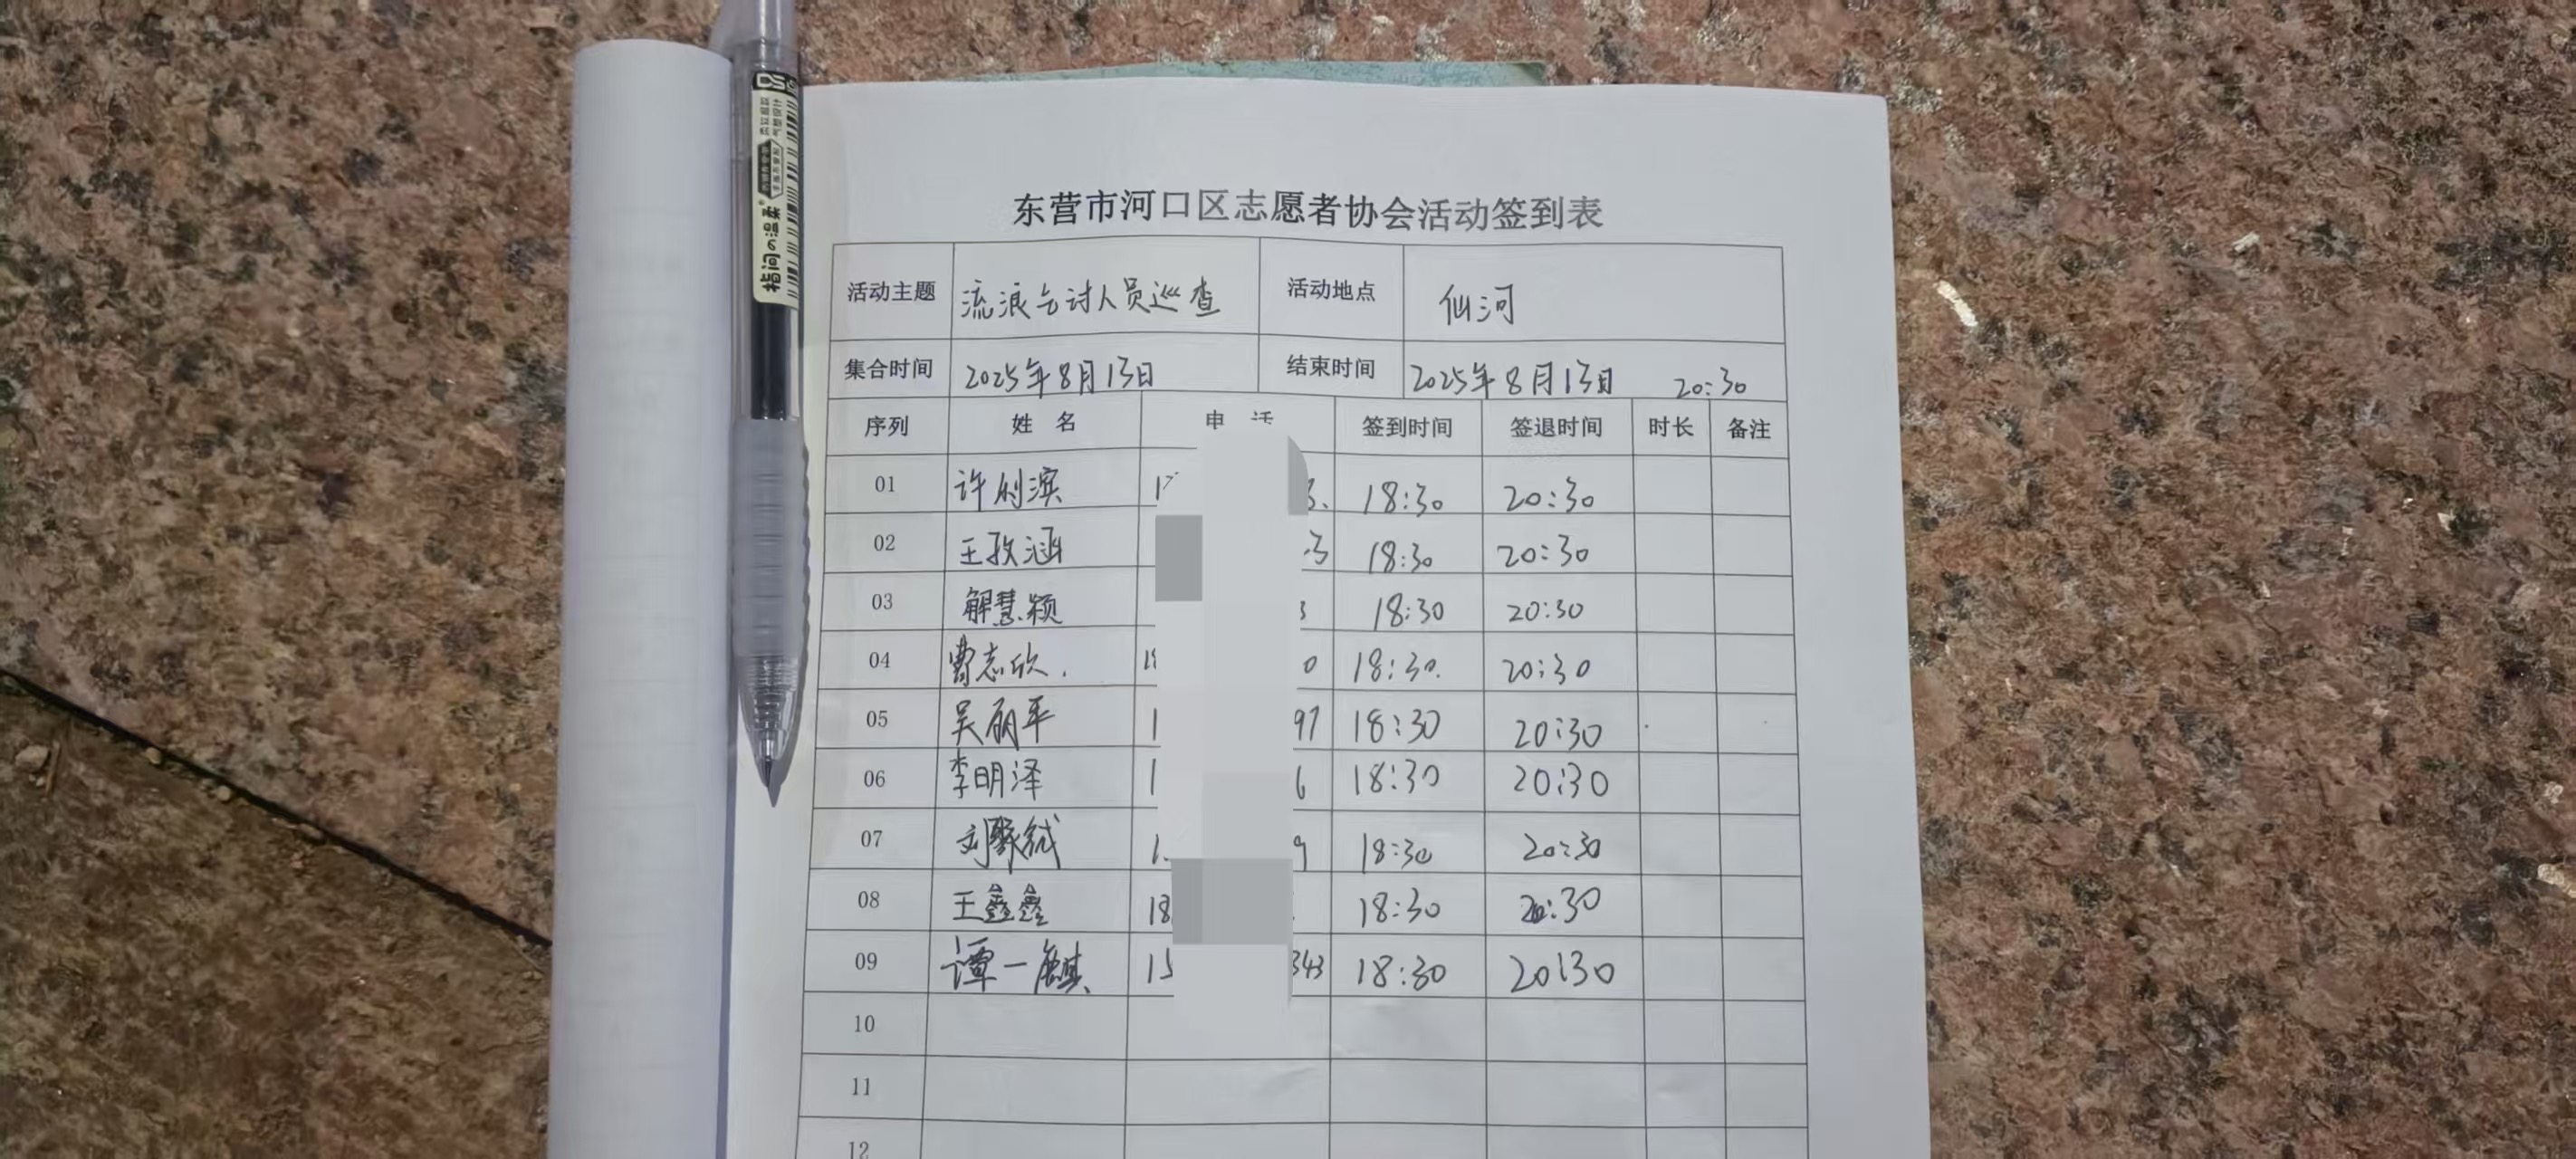 指间の温柔
东营市河口区志愿者协会活动签到表
活动主题 流浪乞讨人员巡查 活动地点 仙河
集合时间 2025年8月13日 结束时间 2025年8月13日 20:30
序列 姓 名 电 话 签到时间 签退时间 时长 备注
01 许 滨 18:30 20:30
02 王 涵 3 18:30 20:30
03 解慧颖 3 18:30 20:30
04 曹志欣. 18 0 18:30. 20:30
05 吴丽平 1 97 18:30 20:30
06 李明泽 1 6 18:30 20:30
07 刘 1 9 18:30 20:30
08 王鑫鑫 18 18:30 20:30
09 谭一麒 15 343 18:30 20:30
10
11
12